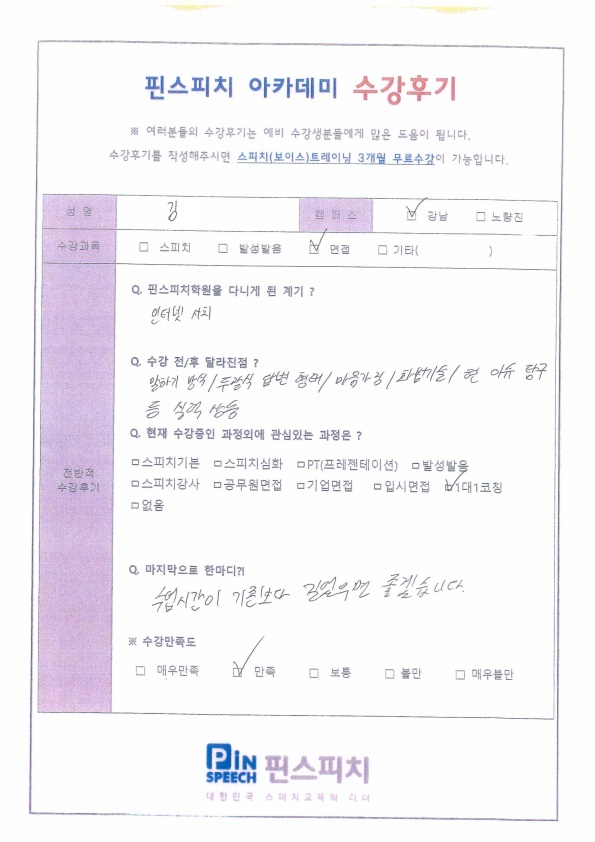 핀스피치 아카데미 수강후기
※ 여러분들의 수강후기는 예비 수강생분들에게 많은 도움이 됩니다.
수강후기를 작성해주시면 스피치(보이스)트레이닝 3개월 무료수강이 가능합니다.
성 명 김 캠 퍼 스 ☑ 강남 □ 노량진
수강과목 □ 스피치 □ 발성발음 ☑ 면접 □ 기타( )
Q. 핀스피치학원을 다니게 된 계기 ?
인터넷 서치
Q. 수강 전/후 달라진점 ?
말하기 방식 / 두괄식 답변 형태 / 마음가짐 / 화법기술 / 현 이슈 탐구
등 실력 상승
Q. 현재 수강중인 과정외에 관심있는 과정은 ?
전반적
수강후기
□스피치기본 □스피치심화 □PT(프레젠테이션) □발성발음
□스피치강사 □공무원면접 □기업면접 □입시면접 ☑1대1코칭
□없음
Q. 마지막으로 한마디?!
수업시간이 기존보다 길었으면 좋겠습니다.
※ 수강만족도
□ 매우만족 ☑ 만족 □ 보통 □ 불만 □ 매우불만
PiN
SPEECH 핀스피치
대한민국 스피치교육의 리더